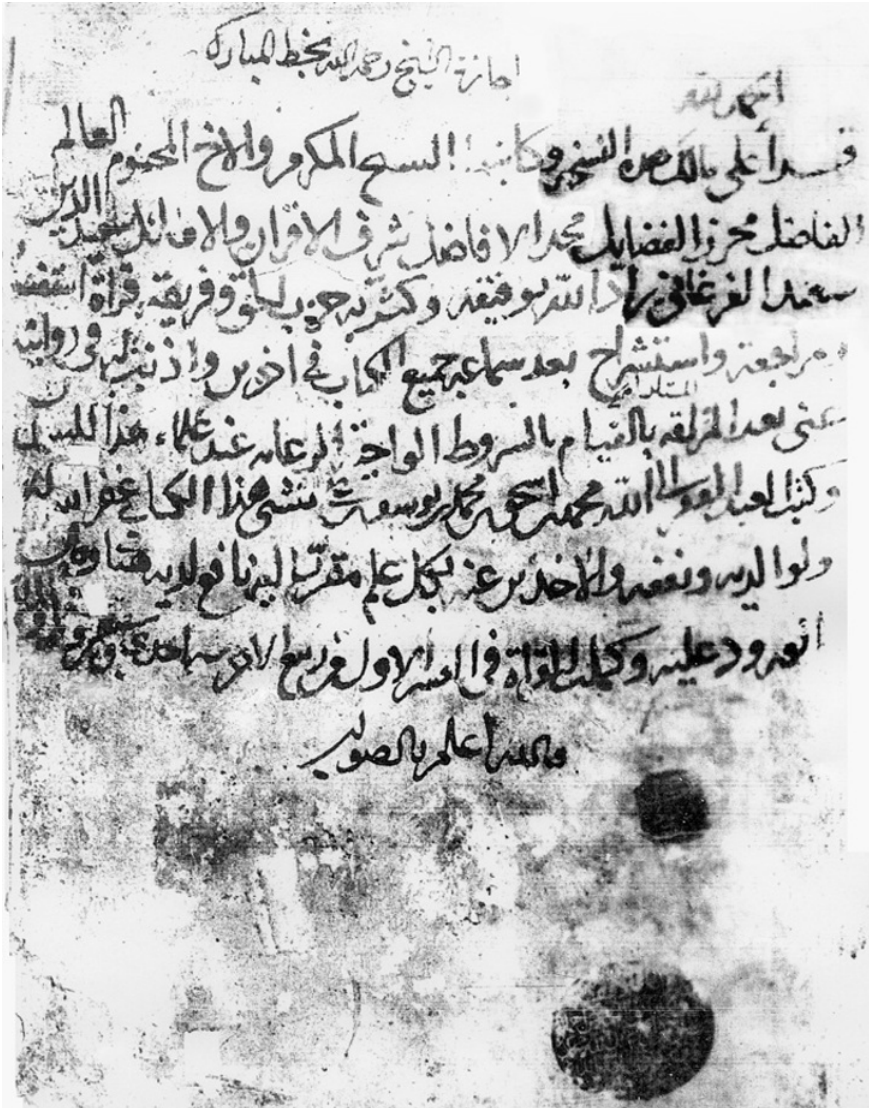 اجازة الشيخ رحمه الله بخطه المبارك
الحمد لله
قرأ على مالك هذه النسخه وكاتبها الشيخ المكرم والاخ المحترم العالم
الفاضل محرز الفضايل مجد الافاضل شرف الاقران والاماثل سعيد الدين
سعيد الفرغانى زاد الله توفيقه وكثر به حزب الحق وفريقه قراة
مراجعة واستشراح بعد سماعه جميع الكتاب واذنت له فى روايته
عنى بعد القيام بالشروط الواجبة عند علماء هذا
وكتب العبد الفقير الى الله محمد بن اسحق بن محمد بن يوسف منشئ هذا الكتاب غفر الله له
ولوالديه ونفعه والاخذين عنه بكل علم مقرب اليه نافع لديه
وكملت القراة فى العشر الاول من ربيع الاخر سنه احدى
والله اعلم بالصواب